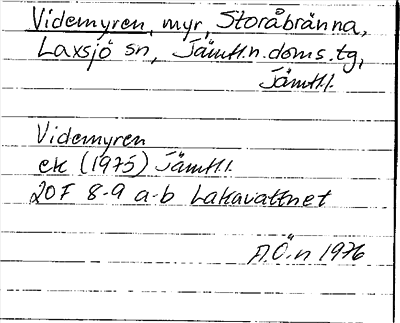 Videmyren, myr, Storåbränna,
Laxsjö sn, Jämtl.n.doms.tg,
Jämtl.l.
Videmyren
ek (1975) Jämtl.l.
20F 8-9 a-b Lakavattnet
A.Ö.n 1976